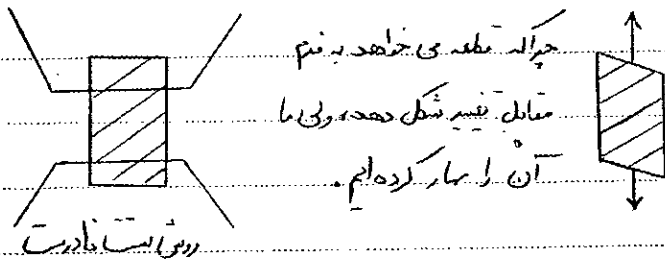 چراکه قطعه می خواهد به فرم
مقابل تغییر شکل دهد، ولی ما
آن را مهار کرده ایم.
روش تست نادرست